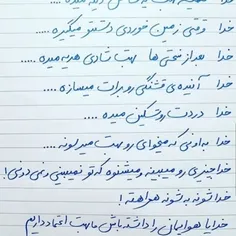 خدا وقتی زمین خوردی دستتو میگیره ....
خدا بعد از سختی ها بهت شادی هدیه میده ....
خدا آینده ی قشنگی رو برات میسازه ....
خدا دردت رو تسکین میده ....
خدا به اونی که میخوای رو بهت میرسونه ....
خدا چیزی رو میبینه و میشنوه که تو نمیبینی و نمیدونی!
خدا شونه به شونه هواهته!
خدایا هوامان را داشته باش ما بهت اعتماد داریم